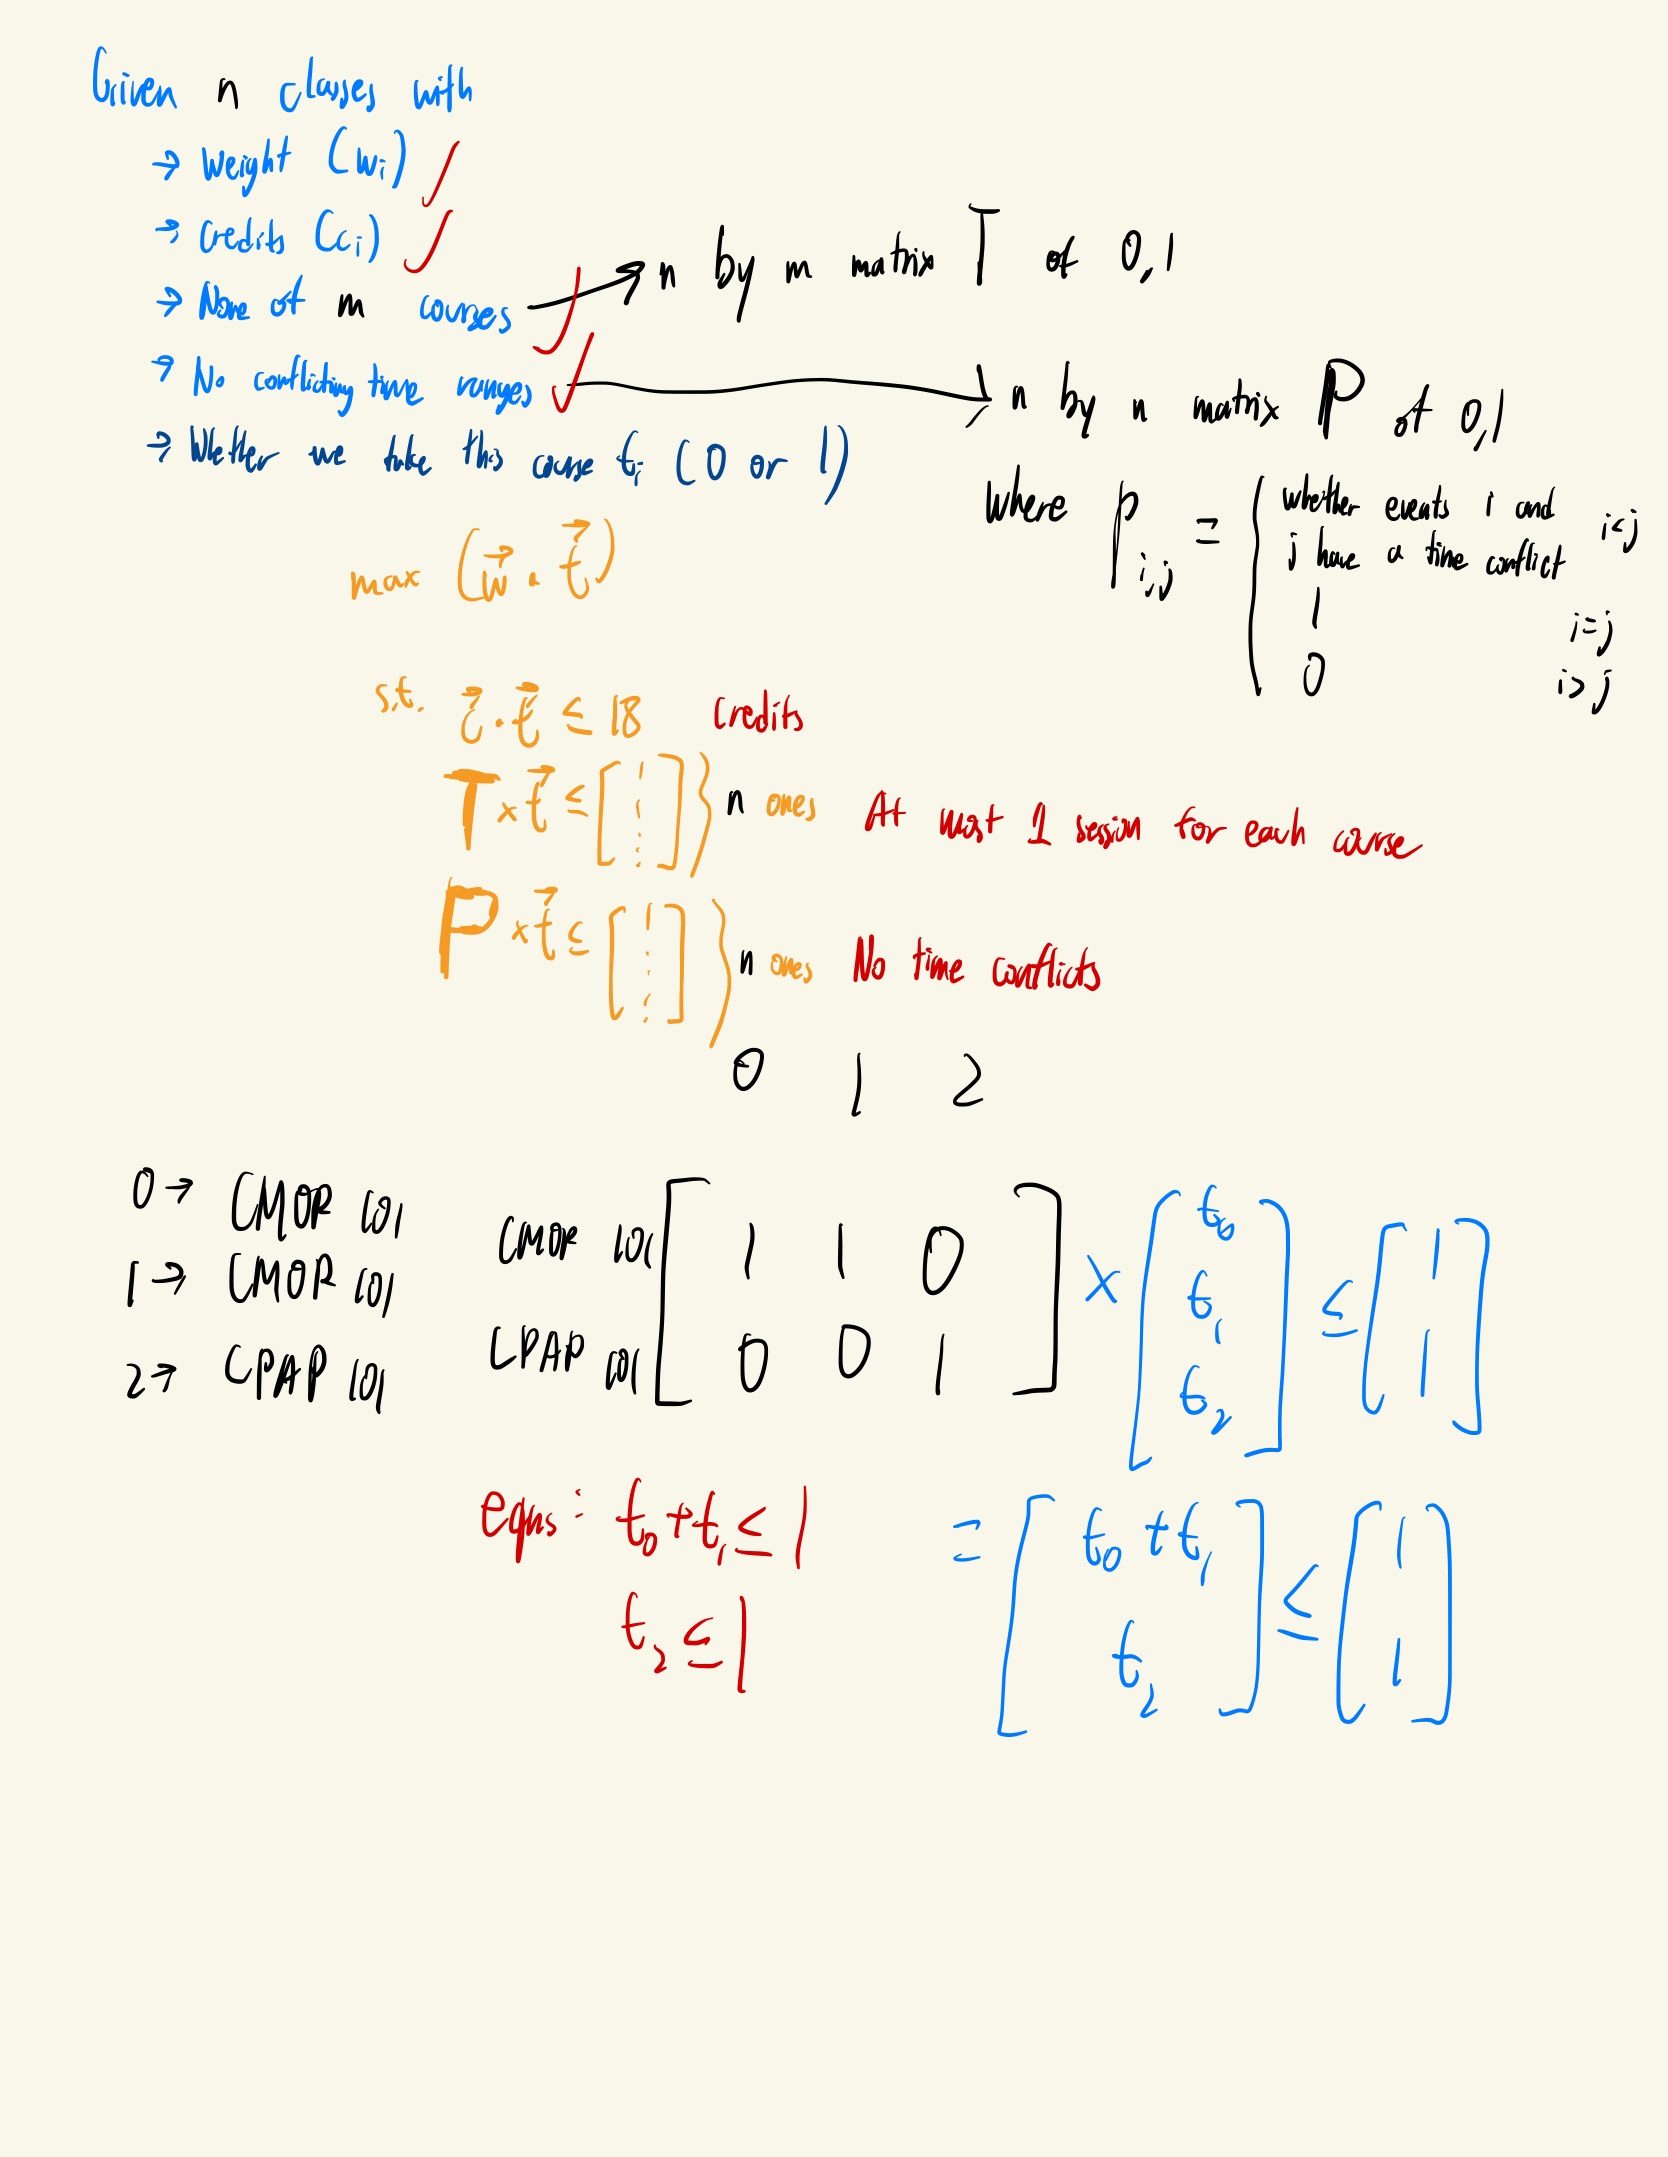 Given n classes with
→ Weight (wᵢ) ✓
→ Credits (cᵢ) ✓
→ None of m courses ✓ → n by m matrix T of 0,1
→ No conflicting time ranges ✓ → n by n matrix P of 0,1
→ Whether we take this course tᵢ (0 or 1)
where Pᵢ,ⱼ = { whether events i and j have a time conflict i<j
1 i=j
0 i>j
max (w⃗ · t⃗)
s.t. c⃗ · t⃗ ≤ 18 Credits
T × t⃗ ≤ [1 ⋮] } n ones At most 1 session for each course
P × t⃗ ≤ [1 ⋮] } n ones No time conflicts
0 1 2
0 → CMOR 101
1 → CMOR 101
2 → CPAP 101
CMOR 101 [1 1 0] × [t₀ t₁ t₂] ≤ [1 1]
CPAP 101 [0 0 1]
eqns: t₀ + t₁ ≤ 1
t₂ ≤ 1
= [t₀ + t₁
t₂] ≤ [1 1]